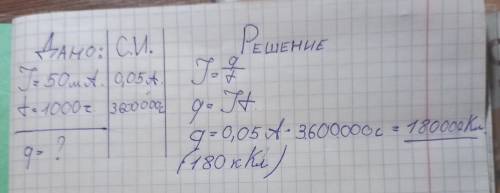 Дано: С.И. Решение
I=50мА. 0,05А. I=q/t
t=1000ч 3600000с q=It
q=? q=0,05А·3600000с=180000Кл
(180кКл)